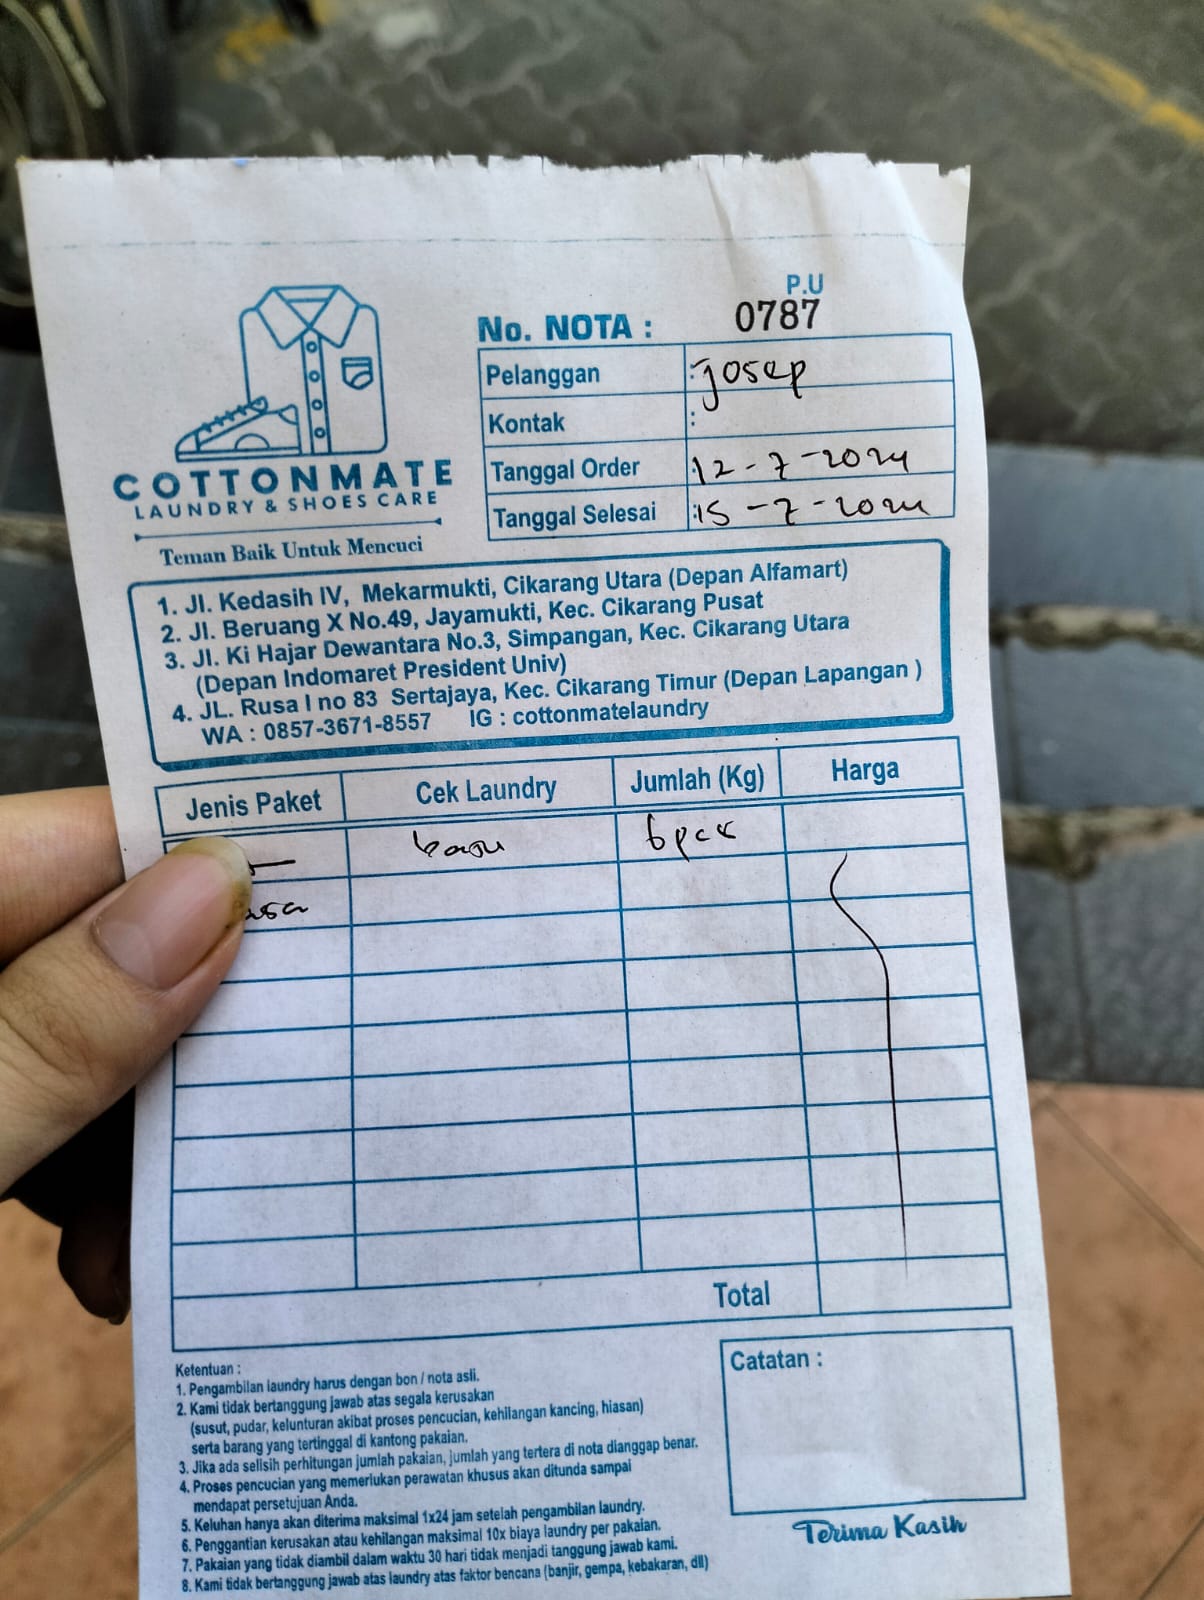 P.U
No. NOTA : 0787
Pelanggan : josep
Kontak :
Tanggal Order : 12-7-2024
Tanggal Selesai : 15-7-2024
COTTONMATE
LAUNDRY & SHOES CARE
Teman Baik Untuk Mencuci
1. Jl. Kedasih IV, Mekarmukti, Cikarang Utara (Depan Alfamart)
2. Jl. Beruang X No.49, Jayamukti, Kec. Cikarang Pusat
3. Jl. Ki Hajar Dewantara No.3, Simpangan, Kec. Cikarang Utara
(Depan Indomaret President Univ)
4. JL. Rusa I no 83 Sertajaya, Kec. Cikarang Timur (Depan Lapangan )
WA : 0857-3671-8557 IG : cottonmatelaundry
Jenis Paket Cek Laundry Jumlah (Kg) Harga
baju 6 pcs
Total
Ketentuan :
1. Pengambilan laundry harus dengan bon / nota asli.
2. Kami tidak bertanggung jawab atas segala kerusakan
(susut, pudar, kelunturan akibat proses pencucian, kehilangan kancing, hiasan)
serta barang yang tertinggal di kantong pakaian.
3. Jika ada selisih perhitungan jumlah pakaian, jumlah yang tertera di nota dianggap benar.
4. Proses pencucian yang memerlukan perawatan khusus akan ditunda sampai
mendapat persetujuan Anda.
5. Keluhan hanya akan diterima maksimal 1x24 jam setelah pengambilan laundry.
6. Penggantian kerusakan atau kehilangan maksimal 10x biaya laundry per pakaian.
7. Pakaian yang tidak diambil dalam waktu 30 hari tidak menjadi tanggung jawab kami.
8. Kami tidak bertanggung jawab atas laundry atas faktor bencana (banjir, gempa, kebakaran, dll)
Catatan :
Terima Kasih